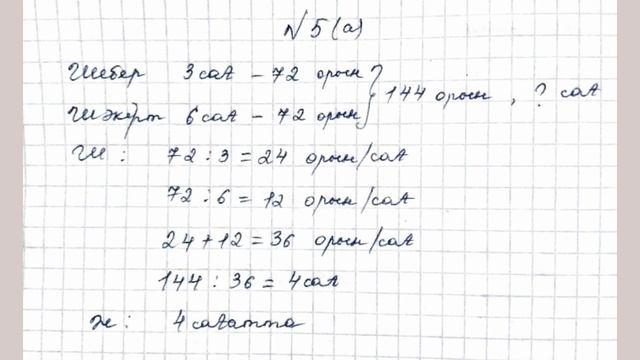 №5(а)
Шебер 3 сағ – 72 орын
Шәкірт 6 сағ – 72 орын } 144 орын, ? сағ
Ш: 72 : 3 = 24 орын/сағ
72 : 6 = 12 орын/сағ
24 + 12 = 36 орын/сағ
144 : 36 = 4 сағ
Ж: 4 сағатта